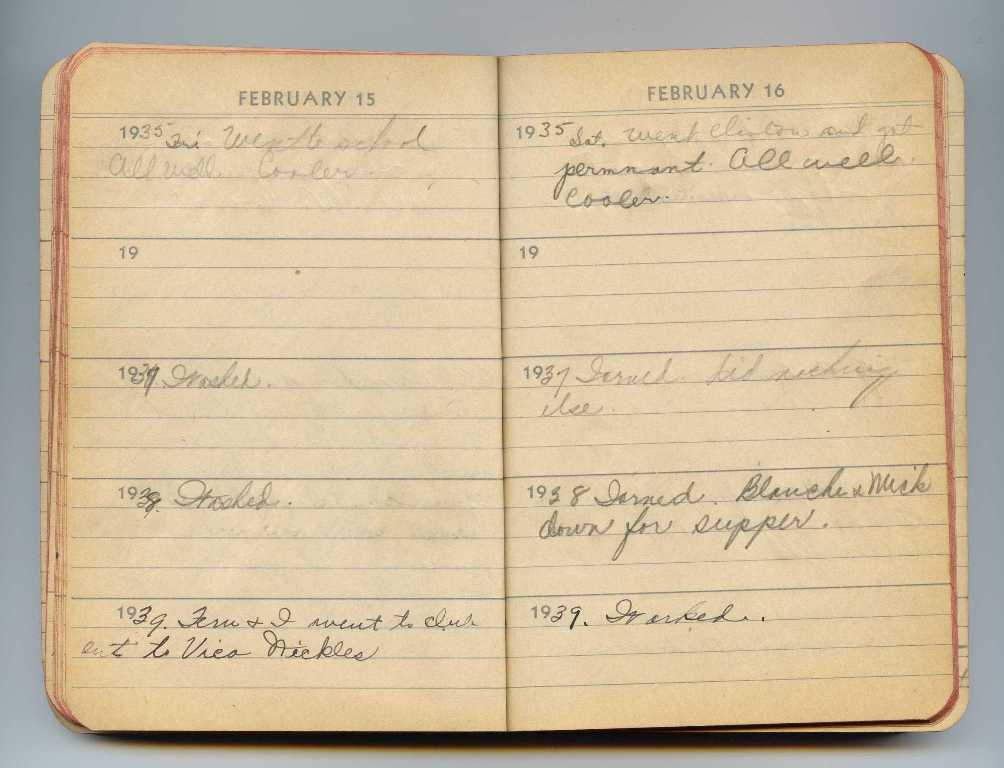 FEBRUARY 15
1935 Fri Went to school
All well. Cooler.
19
1937. Washed.
1938. Washed.
1939. Fern & I went to club
out to Vica Nickles
FEBRUARY 16
1935 Sat. went Clinton and got
permnant. All well.
Cooler.
19
1937 Iorned. Did nothing
else.
1938 Iorned. Blanche & Mick
down for supper.
1939. Worked.